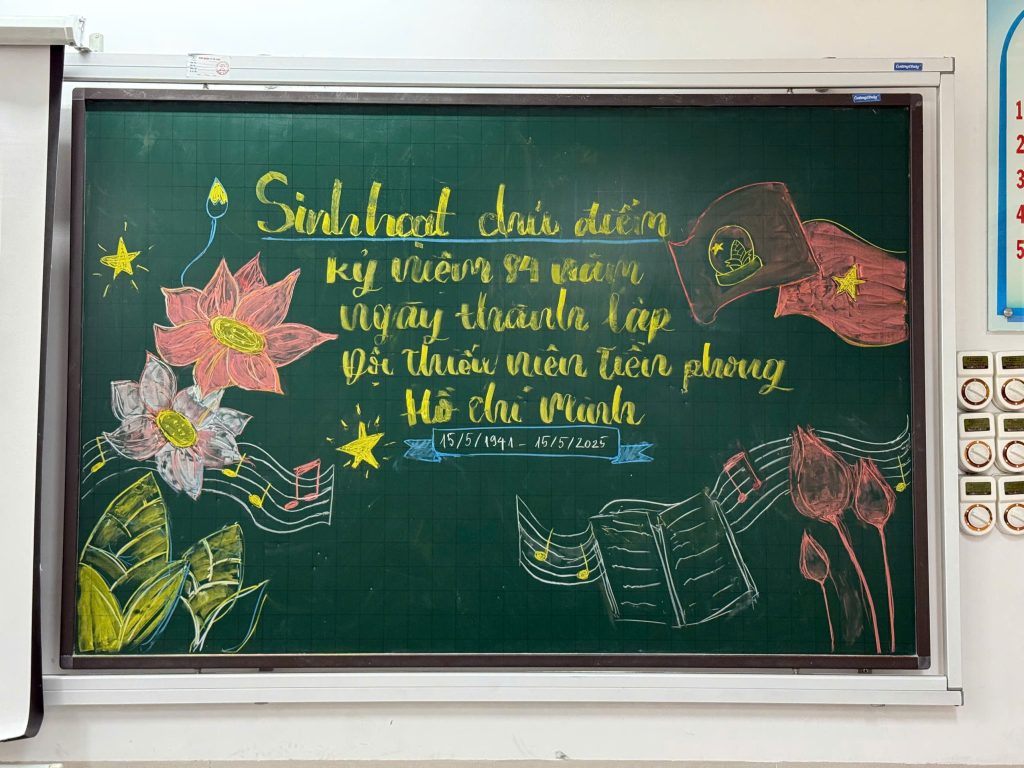 Sinh hoạt chủ điểm
Kỷ niệm 84 năm
ngày thành lập
Đội Thiếu niên Tiền phong
Hồ Chí Minh
15/5/1941 - 15/5/2025
1
2
3
4
5